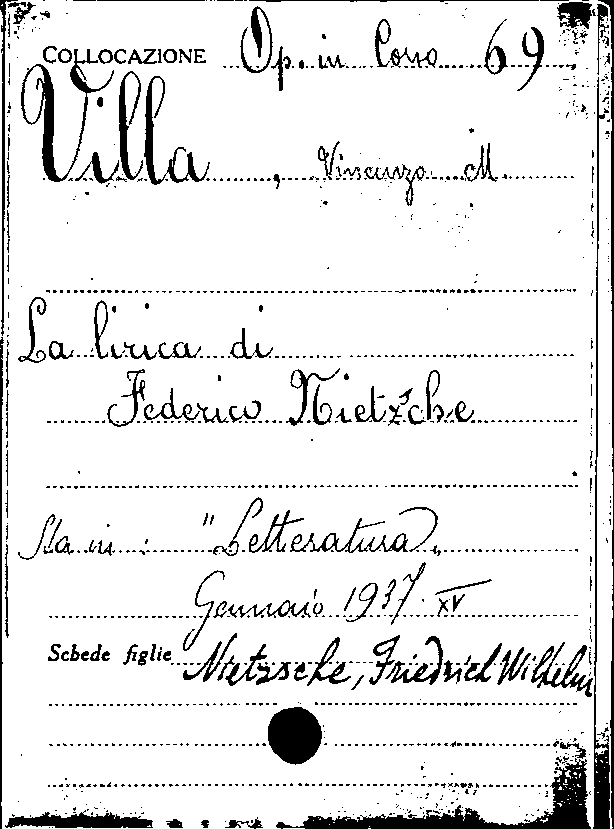 COLLOCAZIONE Op. in Corso 69
Villa, Vincenzo M.
La lirica di
Federico Nietzsche
Sta in: "Letteratura"
Gennaio 1937. XV
Schede figlie Nietzsche, Friedrich Wilhelm